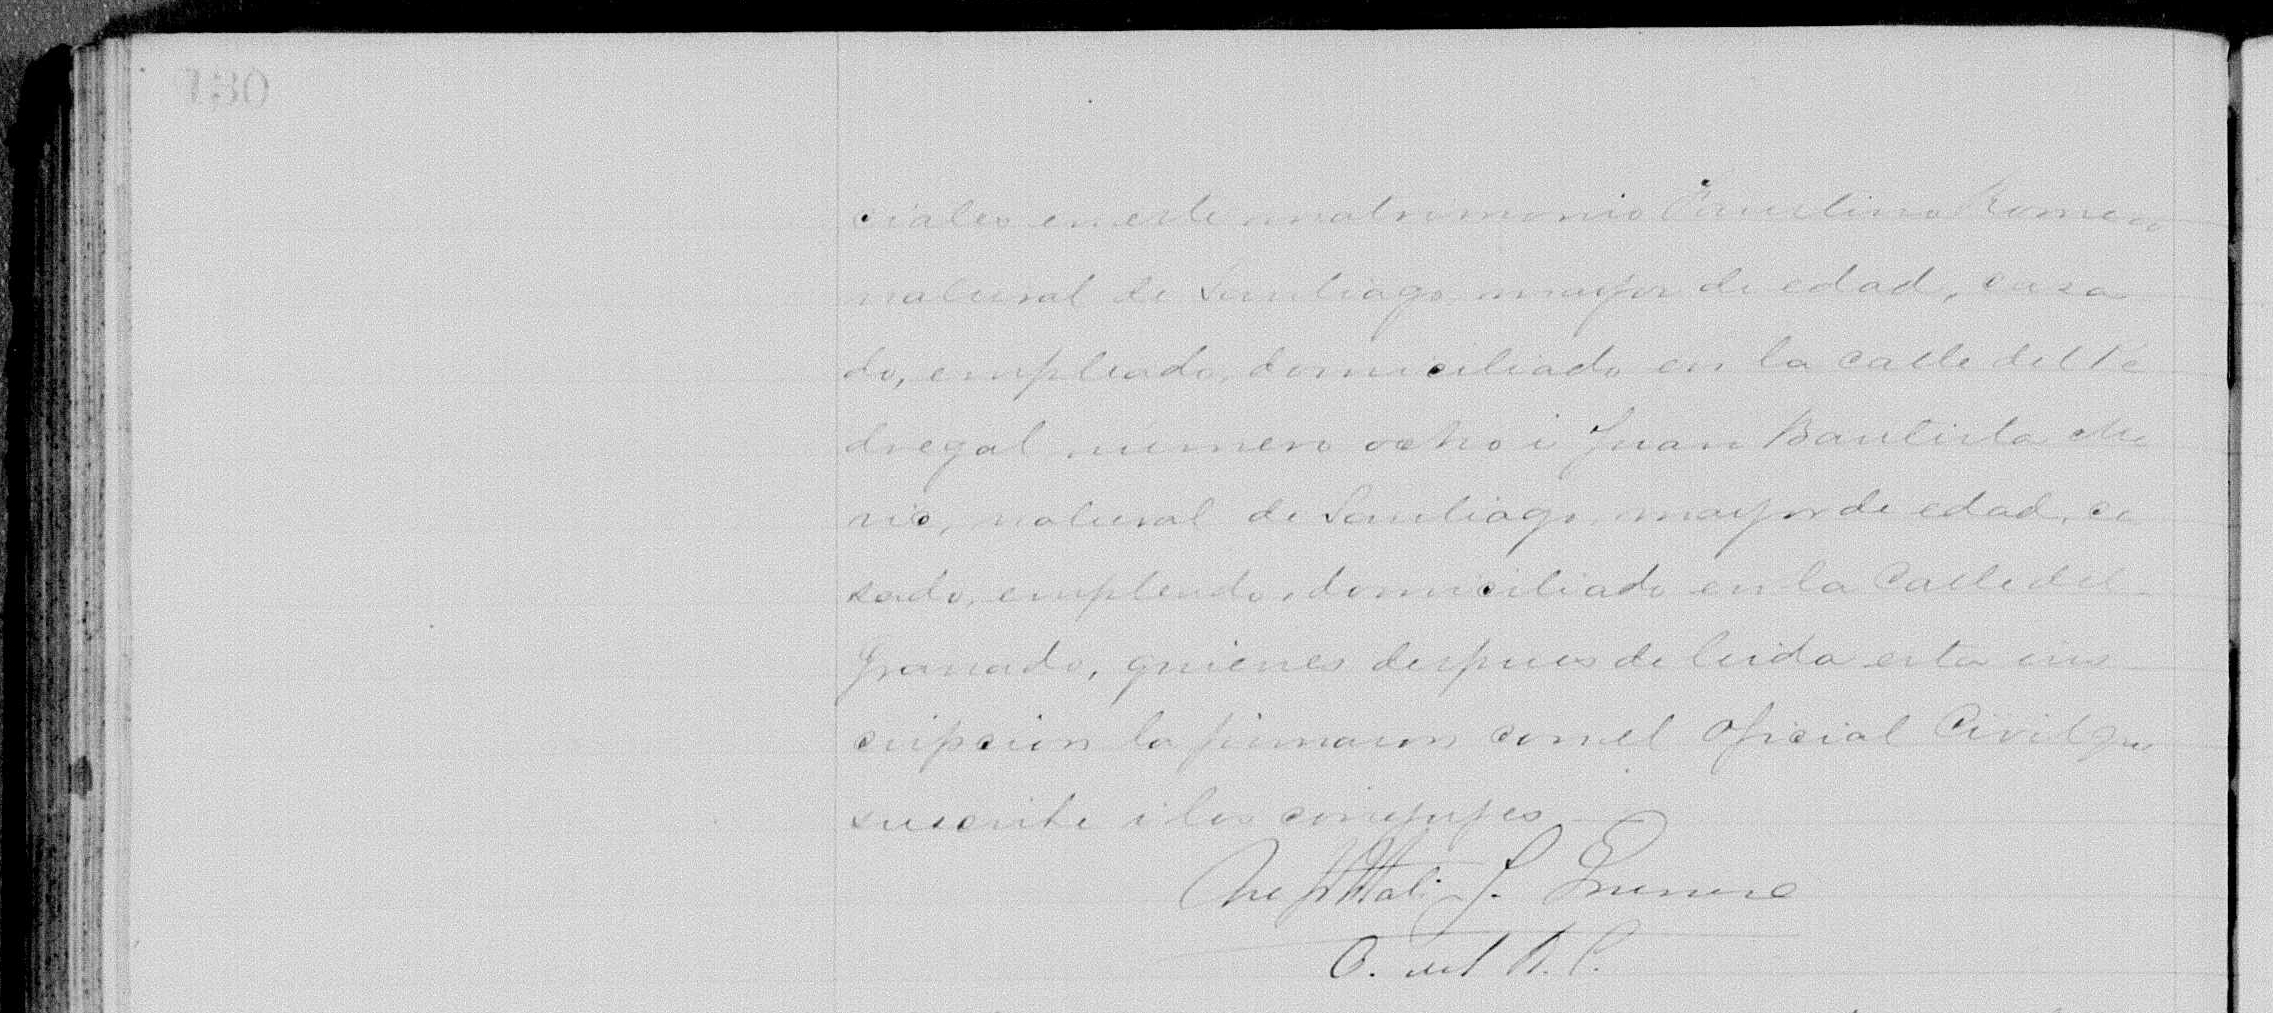 ciales en este matrimonio Faustino Romero
natural de Santiago mayor de edad, casa
do, empleado, domiciliado en la calle del Pe
dregal numero ocho i Juan Bautista Me
rio, natural de Santiago mayor de edad, ca
sado, empleado, domiciliado en la Calle del
Granado, quienes despues de leida esta ins
cripcion la firmaron con el Oficial Civil que
suscribe i los conyuges
Neftali J.
O. del R. C.